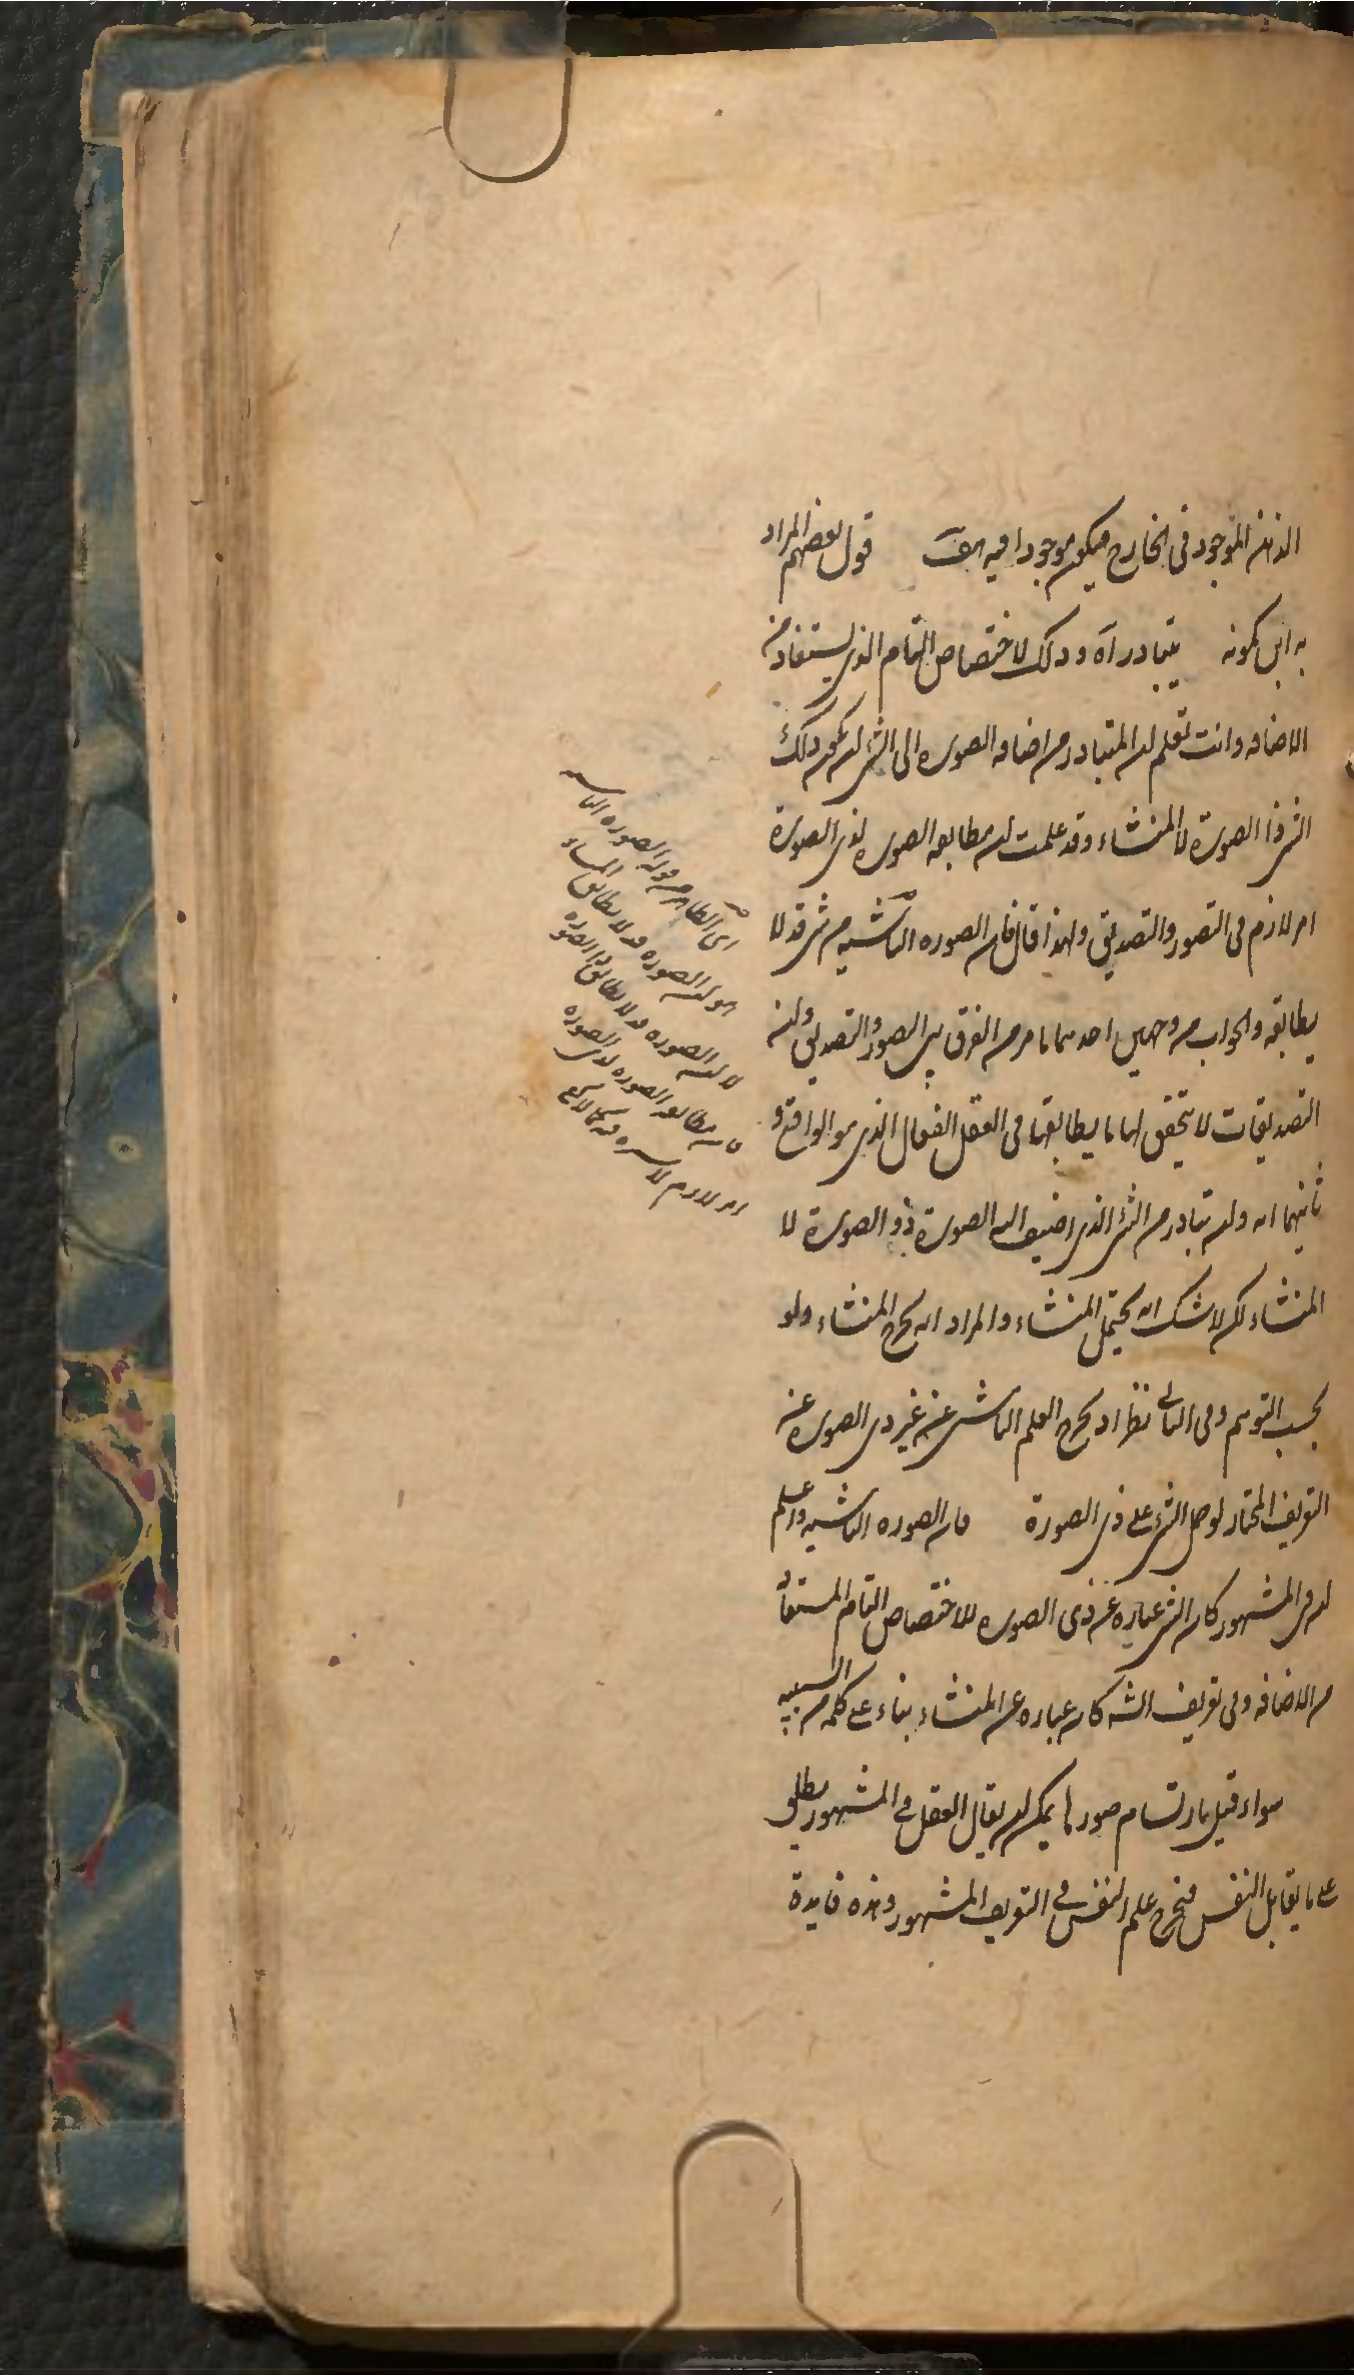 الذهن الموجود فى الخارج فيكون موجودا فيه هف قول بعضهم المراد
به ابن كمونه يتبادر آه وذلك لاختصاص التام الذى يستفاد من
الاضافه وانت تعلم ان المتبادر من اضافه الصوره الى الشئ ان يكون ذلك
الشئ ذا الصورة لا المنشاء وقد علمت ان مطابقه الصوره لذى الصورة
امر لازم فى التصور والتصديق ولهذا قال فان الصوره الناشيه من شئ قد لا
يطابقه والجواب من وجهين احدهما ما مر من الفرق بين التصور والتصديق وان
التصديقات لا يتحقق لها ما يطابقها فى العقل الفعال الذى هو الواقع و
ثانيهما انه وان تبادر من الشئ الذى اضيف اليه الصورة ذو الصورة لا
المنشاء لكن لا شك انه يحتمل المنشاء والمراد انه يخرج المنشاء ولو
بحسب التوهم وفى الثانى نظر اذ يخرج العلم الناشى عن غير ذى الصوره عن
التعريف المختار لو حمل الشئ على ذى الصورة فان الصوره الناشيه واعلم
ان فى المشهور كان الشئ عباره عن ذى الصوره للاختصاص التام المستفاد
من الاضافه وفى تعريف الشه كان عباره عن المنشاء بناء على كلمه من السببيه
سواء قيل بارتسام صور ما يمكن ان يقال العقل فى المشهور يطلق
على ما يقابل النفس فيخرج علم النفس فى التعريف المشهور وهذه فايدة
اى الظاهر من قوله الصوره الناشيه
هو ان الصوره قد لا يطابق المنشاء
لا ان الصوره قد لا يطابق ذا الصوره
فان مطابقه الصوره لذى الصوره
امر لازم لا ستره فيه كما لا يخفى